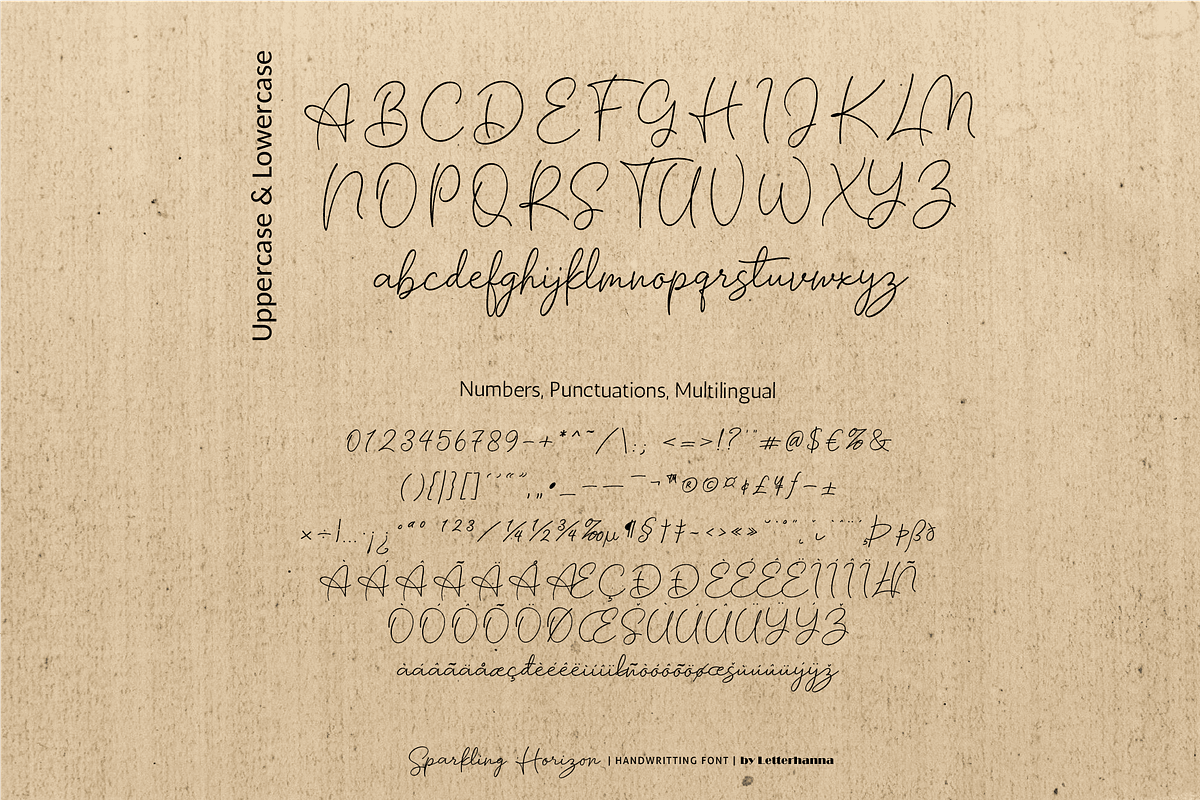 Uppercase & Lowercase
ABCDEFGHIJKLM
NOPQRSTUVWXYZ
abcdefghijklmnopqrstuvwxyz
Numbers, Punctuations, Multilingual
0123456789-+*^~/\:; <=>!?'"#@$€%&
(){|}[]`´‘’“”‚„•_–—¯¬™®©¤¢£¥ƒ−±
×÷¦…·¡¿°ªº¹²³⁄¼½¾‰µ¶§†‡-‹›«»˘˙°˝ Þþßð
ÀÁÂÃÄÅÆÇÐĐÈÉÊËÌÍÎÏŁÑ
ÒÓÔÕÖØŒŠÙÚÛÜÝŸŽ
àáâãäåæçđèéêëìíîïłñòóôõöøœšùúûüýÿž
Sparkling Horizon | HANDWRITTING FONT | by Letterhanna